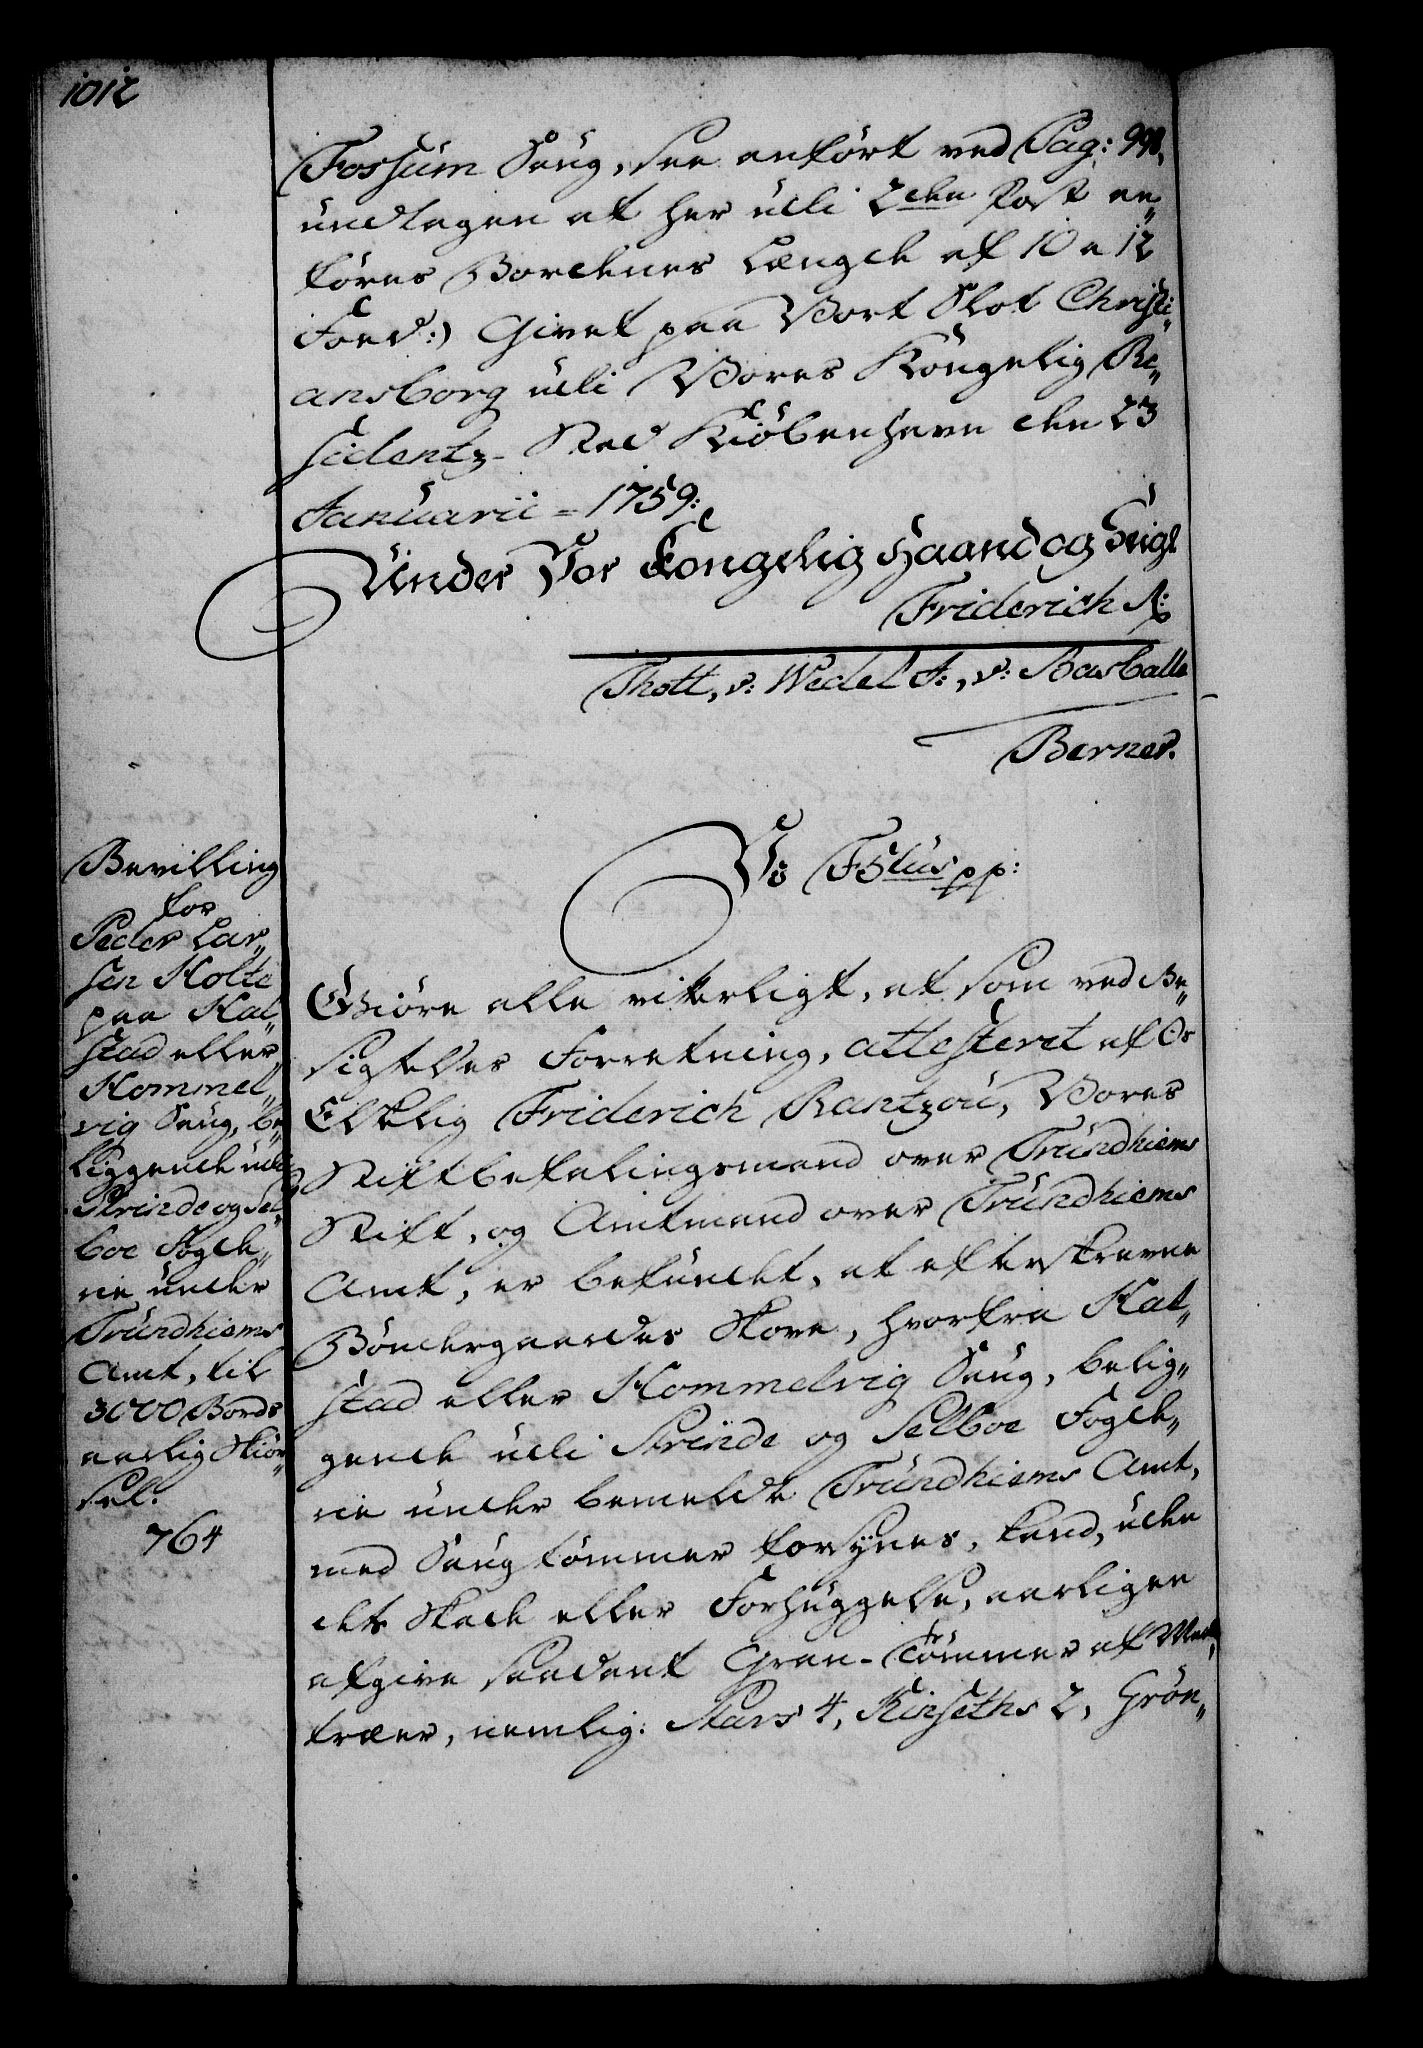 1012
Fossum Saug, see anført ved Pag: 998,
undtagen at her udi 2den Post an„
føres Bordenes Længde af 10 a 12
Foed:) Givet paa Vort Slot Christi„
ansborg udi Vores Kongelig Re„
sidentz-Stad Kiøbenhavn den 23
Januarii - 1759:
Under Vor Kongelig Haand og Seigl
Friderich R:
Thott, v: Wedel F:, v: Barballe
Berner.
Bevilling
for
Peder Lar„
sen Holte
paa Hal„
stad eller
Hommel„
vig Saug, be„
liggende udi
Strinde og Sel„
boe Fogde„
rie under
Trundhiems
Amt, til
3000 Bords
aarlig Skiør„
sel.
764
Vi F5tus pp:
Giøre alle vitterligt, at som ved Be„
sigtelses Forretning, attesteret af Os
Elskelig Friderich Rantzou, Vores
Stiftbefalingsmand over Trundhiems
Stift, og Amtmand over Trundhiems
Amt, er befundet, at efterskrevne
Bøndergaardes Skove, hvorfra Hal„
stad eller Hommelvig Saug, belig„
gende udi Strinde og Selboe Fogde„
rie under bemelde Trundhiems Amt,
med Saugtømmer forsynes, kand, uden
dets Skade eller Forhuggelse, aarligen
afgive saadant Gran-Tømmer af
træer, nemlig: Stars 4, Kinseths 2, Grøn„